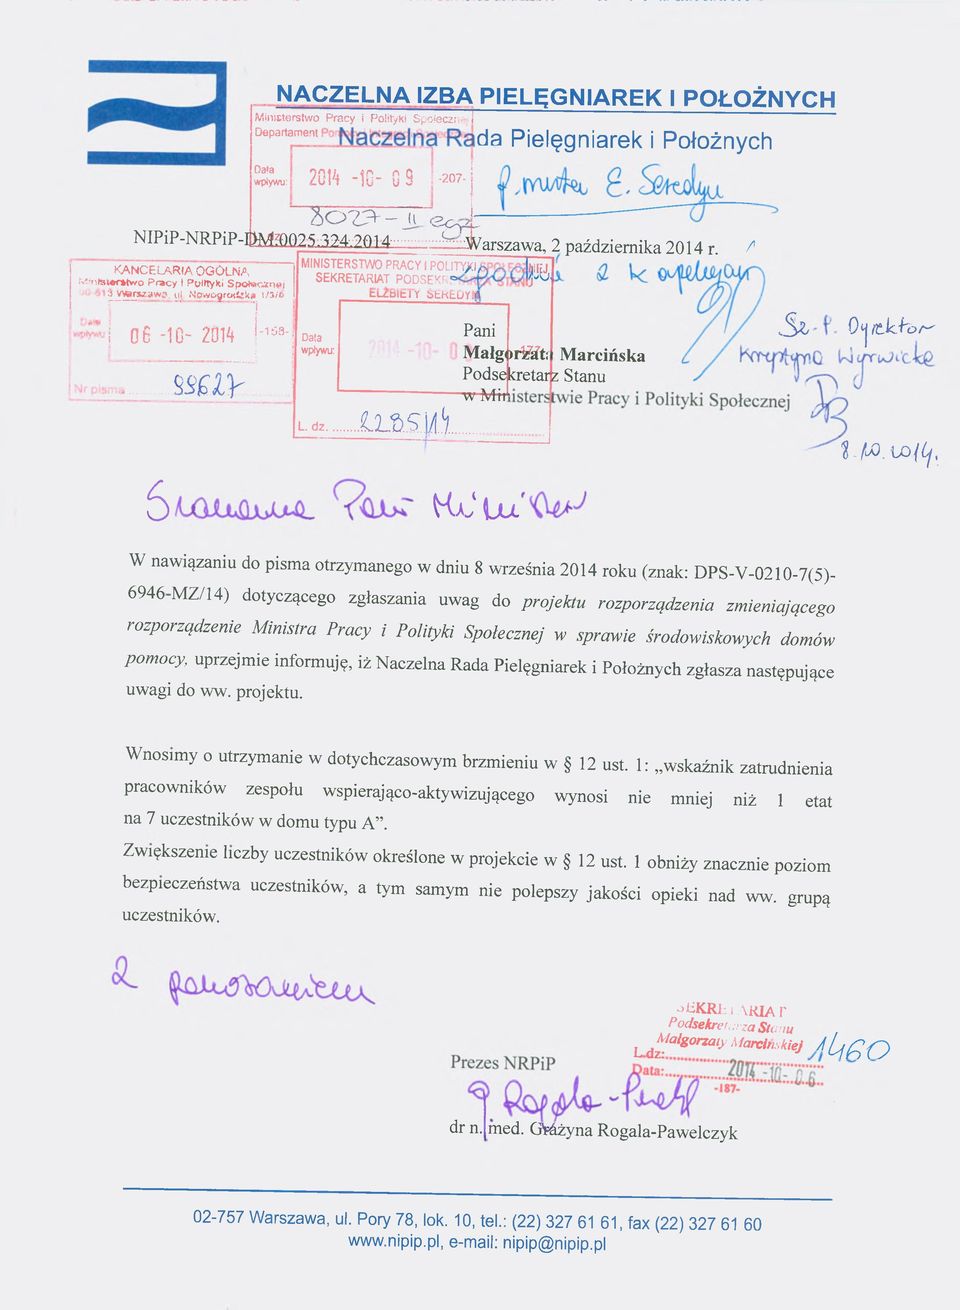 NACZELNA IZBA PIELĘGNIAREK I POŁOŻNYCH
Ministerstwo Pracy i Polityki Społecznej
Departament
Naczelna Rada Pielęgniarek i Położnych
Data wpływu: 2014 -10- 09 -207-
P. minister E. Seredyn
8027-II egz
NIPiP-NRPiP-DM.0025.324.2014
Warszawa, 2 października 2014 r.
KANCELARIA OGÓLNA
Ministerstwo Pracy i Polityki Społecznej
00-513 Warszawa, ul. Nowogrodzka 1/3/5
06 -10- 2014 -158-
Nr pisma 99627
MINISTERSTWO PRACY I POLITYKI SPOŁECZNEJ
SEKRETARIAT PODSEKRETARZA STANU
ELŻBIETY SEREDYN
Data wpływu: 2014 -10- 0 -177-
L. dz. 2285/14
Pani
Małgorzata Marcińska
Podsekretarz Stanu
w Ministerstwie Pracy i Polityki Społecznej
Sz. P. Dyrektor
Krystyna Wyrwicka
8.10.2014.
Szanowna Pani Minister
W nawiązaniu do pisma otrzymanego w dniu 8 września 2014 roku (znak: DPS-V-0210-7(5)-
6946-MZ/14) dotyczącego zgłaszania uwag do projektu rozporządzenia zmieniającego
rozporządzenie Ministra Pracy i Polityki Społecznej w sprawie środowiskowych domów
pomocy, uprzejmie informuję, iż Naczelna Rada Pielęgniarek i Położnych zgłasza następujące
uwagi do ww. projektu.
Wnosimy o utrzymanie w dotychczasowym brzmieniu w § 12 ust. 1: „wskaźnik zatrudnienia
pracowników zespołu wspierająco-aktywizującego wynosi nie mniej niż 1 etat
na 7 uczestników w domu typu A”.
Zwiększenie liczby uczestników określone w projekcie w § 12 ust. 1 obniży znacznie poziom
bezpieczeństwa uczestników, a tym samym nie polepszy jakości opieki nad ww. grupą
uczestników.
Z poważaniem
SEKRETARIAT
Podsekretarza Stanu
Małgorzaty Marcińskiej
L.dz: 1460
Data: 2014 -10- 06
-187-
Prezes NRPiP
G Rogala-Pawel
dr n. med. Grażyna Rogala-Pawelczyk
02-757 Warszawa, ul. Pory 78, lok. 10, tel.: (22) 327 61 61, fax (22) 327 61 60
www.nipip.pl, e-mail: nipip@nipip.pl